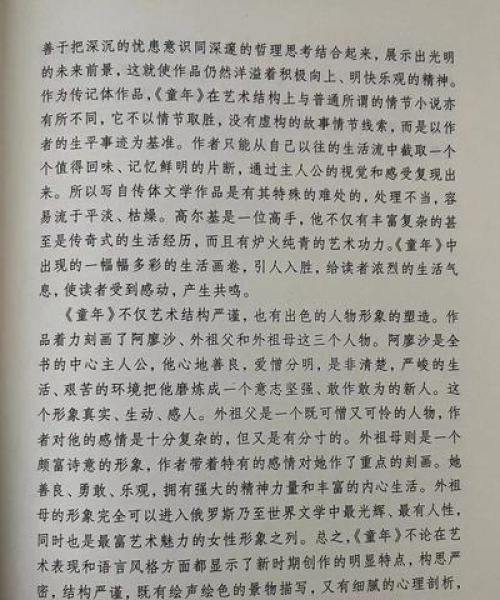 善于把深沉的忧患意识同深邃的哲理思考结合起来，展示出光明
的未来前景，这就使作品仍然洋溢着积极向上、明快乐观的精神。
作为传记体作品，《童年》在艺术结构上与普通所谓的情节小说亦
有所不同，它不以情节取胜，没有虚构的故事情节线索，而是以作
者的生平事迹为基准。作者只能从自己以往的生活流中截取一个
个值得回味、记忆鲜明的片断，通过主人公的视觉和感受复现出
来。所以写自传体文学作品是有其特殊的难处的，处理不当，容
易流于平淡、枯燥。高尔基是一位高手，他不仅有丰富复杂的甚
至是传奇式的生活经历，而且有炉火纯青的艺术功力。《童年》中
出现的一幅幅多彩的生活画卷，引人入胜，给读者浓烈的生活气
息，使读者受到感动，产生共鸣。
《童年》不仅艺术结构严谨，也有出色的人物形象的塑造。作
品着力刻画了阿廖沙、外祖父和外祖母这三个人物。阿廖沙是全
书的中心主人公，他心地善良，爱憎分明，是非清楚，严峻的生
活、艰苦的环境把他磨炼成一个意志坚强、敢作敢为的新人。这
个形象真实、生动、感人。外祖父是一个既可憎又可怜的人物，作
者对他的感情是十分复杂的，但又是有分寸的。外祖母则是一个
颇富诗意的形象，作者带着特有的感情对她作了重点的刻画。她
善良、勇敢、乐观，拥有强大的精神力量和丰富的内心生活。外祖
母的形象完全可以进入俄罗斯乃至世界文学中最光辉、最有人性，
同时也是最富艺术魅力的女性形象之列。总之，《童年》不论在艺
术表现和语言风格方面都显示了新时期创作的明显特点，构思严
密，结构严谨，既有绘声绘色的景物描写，又有细腻的心理剖析，